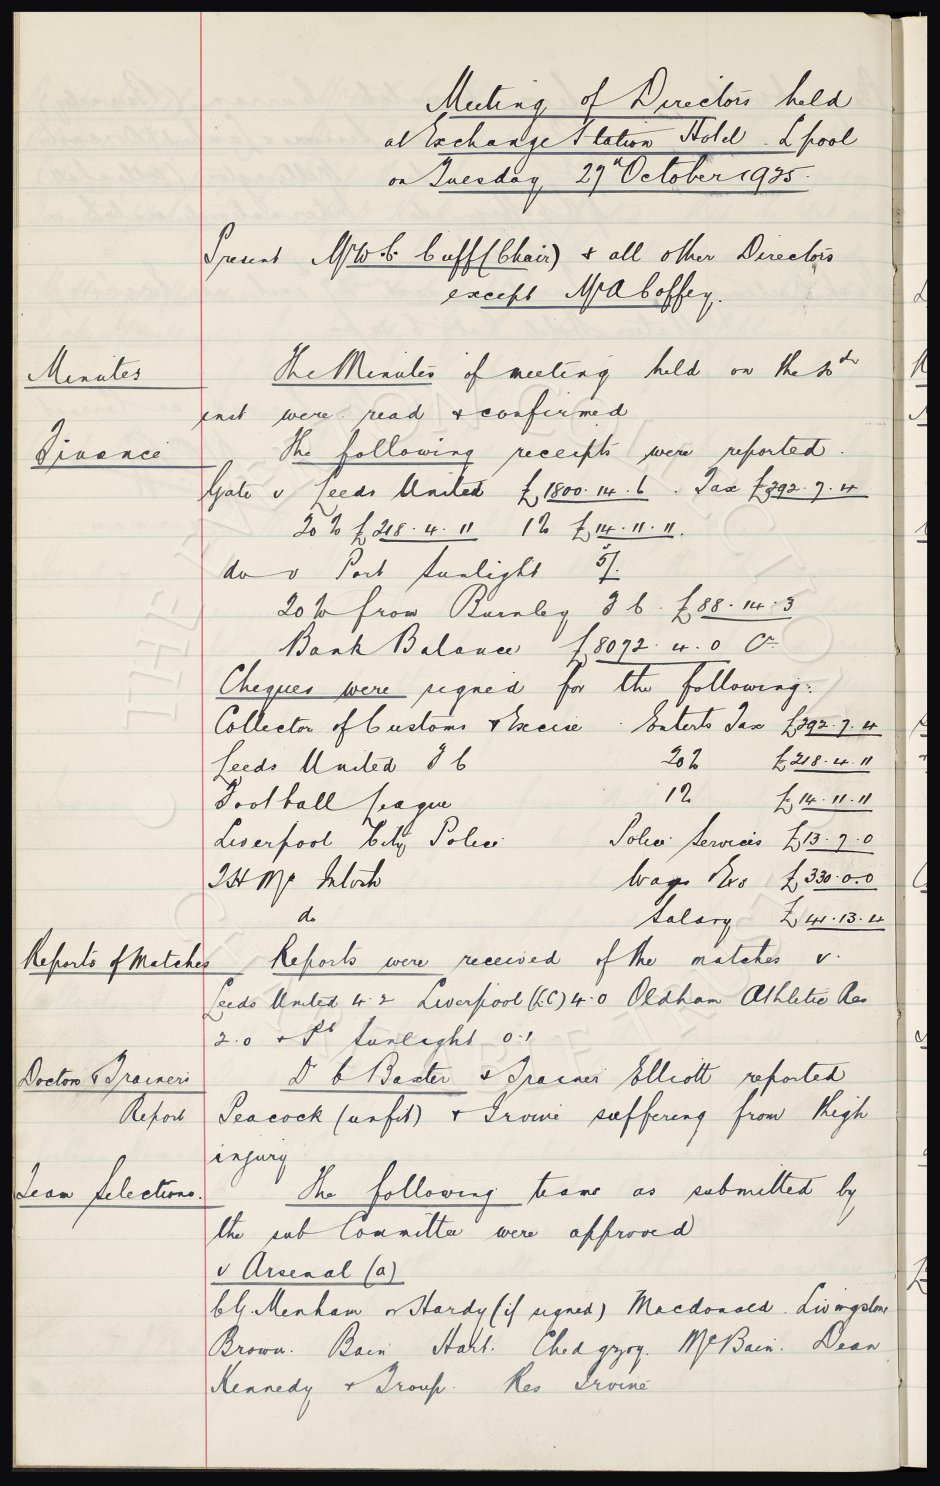 Meeting of Directors held
at Exchange Station Hotel. Lpool
on Tuesday 27th October 1925.
Present Mr W. C. Cuff (Chair) & all other Directors
except Mr A Coffey.
Minutes
The Minutes of meeting held on the 20th
inst were read & confirmed
Finance
The following receipts were reported.
Gate v Leeds United £1800.14.6. Tax £392.7.4
20% £218.4.11 1% £14.11.11.
do v Port Sunlight 5/.
20% from Burnley F C. £88.14.3
Bank Balance £8072.4.0 Cr
Cheques were signed for the following:
Collector of Customs & Excise Enterts Tax £392.7.4
Leeds United F C 20% £218.4.11
Football League 1% £14.11.11
Liverpool City Police Police Services £13.7.0
T H Mc Intosh Wages &co £330.0.0
do Salary £41.13.4
Reports of Matches
Reports were received of the matches v.
Leeds United 4.2 Liverpool (LC) 4.0 Oldham Athletic Res
2.0 & Pt Sunlight 0.1
Doctors & Trainers
Report
Dr C Baxter & Trainer Elliott reported
Peacock (unfit) & Irvine suffering from thigh
injury
Team Selections.
The following teams as submitted by
the sub Committee were approved
v Arsenal (a)
C G. Menham or Hardy (if signed) Macdonald. Livingstone
Brown. Bain Hart. Chedgzoy. McBain. Dean
Kennedy & Troup. Res Irvine